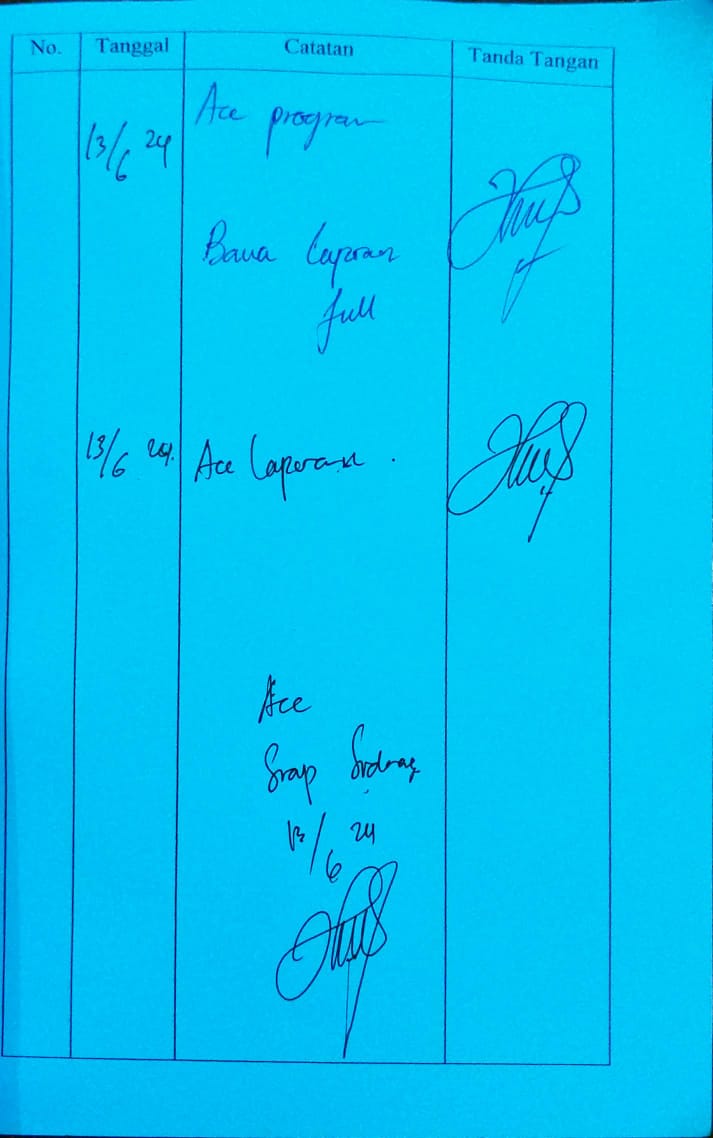 No. Tanggal Catatan Tanda Tangan
Acc program
13/6 24
Bawa Laporan
full
13/6 24. Acc Laporan.
Acc
Siap Sidang
13/6 24